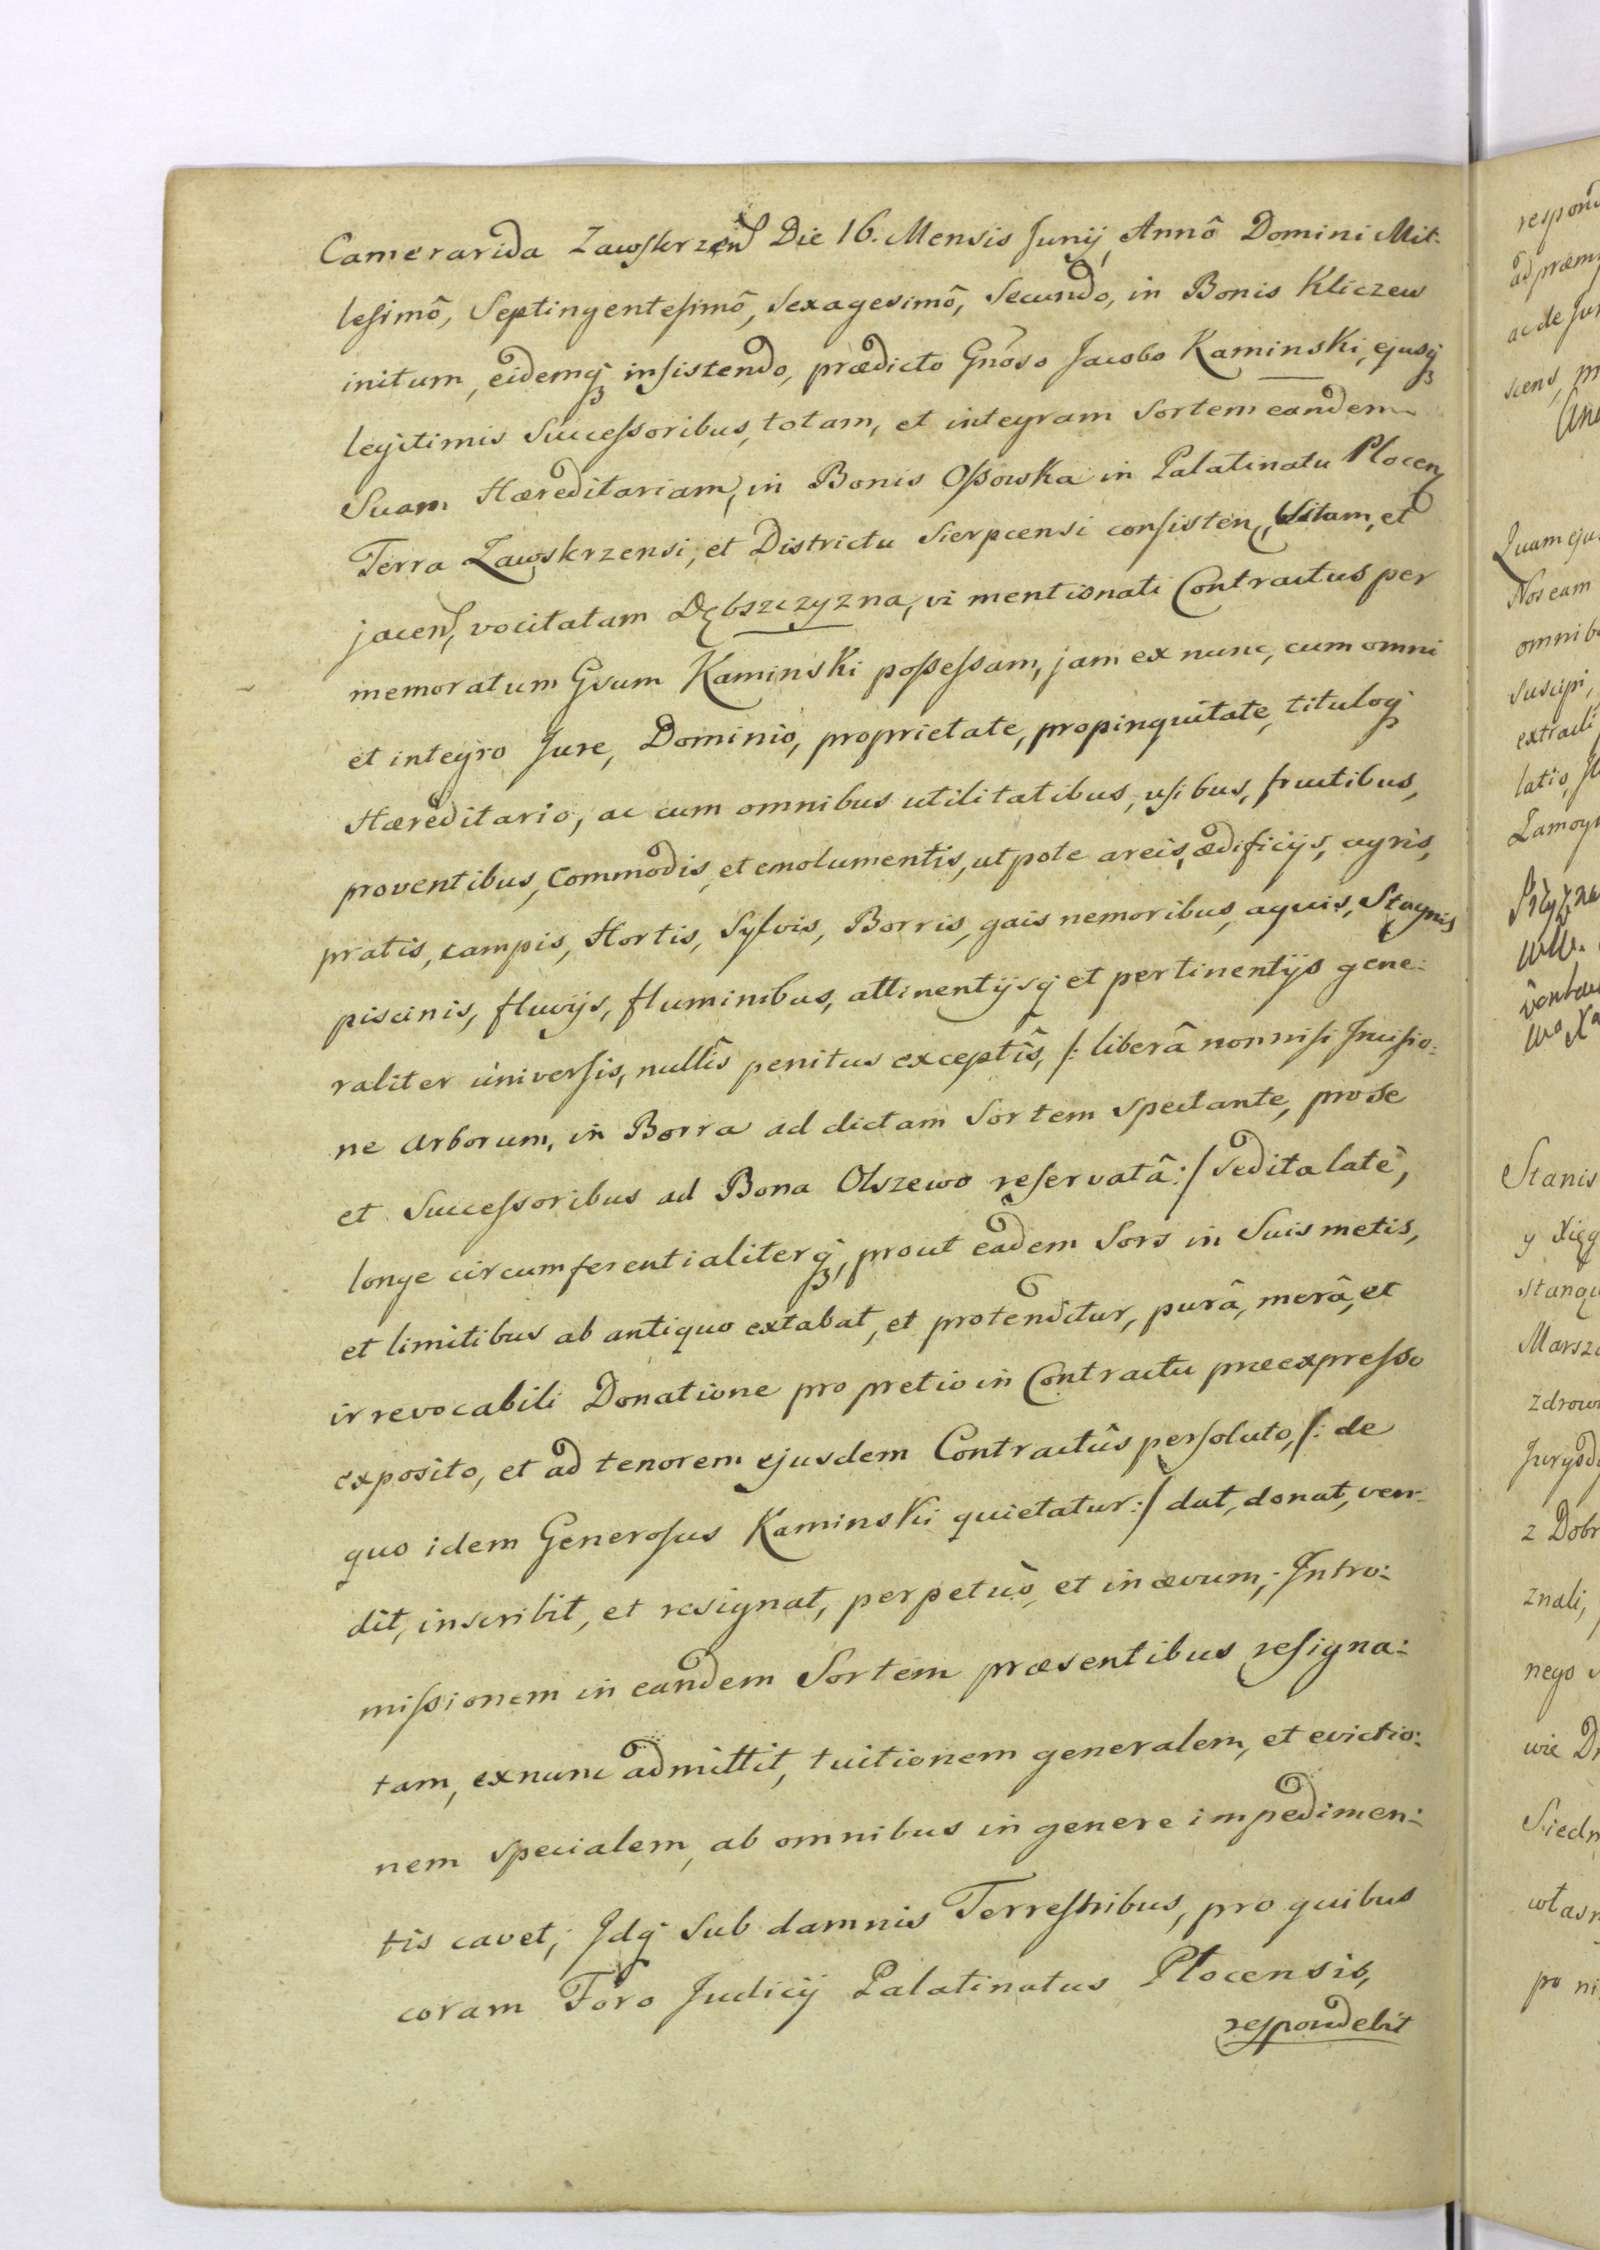 Camerarida Zawskrzen Die 16. Mensis Junij Annô Domini Mil-
lesimô, Septingentesimô, Sexagesimô, Secundo, in Bonis Kliczew
initum, eidemq insistendo, prædicto Gnoso Jacobo Kaminski, ejusq
legitimis Successoribus, totam, et integram Sortem eandem
Suam Hæreditariam, in Bonis Ossowka in Palatinatu Plocen
Terra Zawskrzensi, et Districtu Sierpcensi consisten, Sitam, et
jacen, vocitatam Dębszczyzna, vi mentionati Contractus per
memoratum Gsum Kaminski possessam, jam ex nunc, cum omni
et integro Jure, Dominio, proprietate, propinquitate, tituloq
Hæreditario, ac cum omnibus utilitatibus, usibus, fructibus,
proventibus, Commodis, et emolumentis, ut pote areis, ædificijs, agris,
pratis, campis, Hortis, Sylvis, Borris, gais nemoribus, aquis, Stagnis
piscinis, fluvijs, fluminibus, attinentijsq et pertinentijs gene:
raliter universis, nullis penitus exceptîs, /: liberâ nonnisi Incisio:
ne Arborum, in Borra ad dictam Sortem spectante, pro se
et Successoribus ad Bona Olszewo reservatâ :/ sed ita latè,
longe circumferentialiterq, prout eadem Sors in Suis metis,
et limitibus ab antiquo extabat, et protenditur, purâ, merâ, et
irrevocabili Donatione pro pretio in Contractu præexpresso
exposito, et ad tenorem ejusdem Contractûs persoluto, /: de
quo idem Generosus Kaminski quietatur :/ dat, donat, ven-
dit, inscribit, et resignat, perpetuò, et in ævum; Intro:
missionem in eandem Sortem præsentibus resigna:
tam, exnunc admittit, tuitionem generalem, et evictio:
nem specialem, ab omnibus in genere impedimen:
tis cavet; Idq Sub damnis Terrestribus, pro quibus
coram Foro Judicij Palatinatus Plocensis,
respondebit